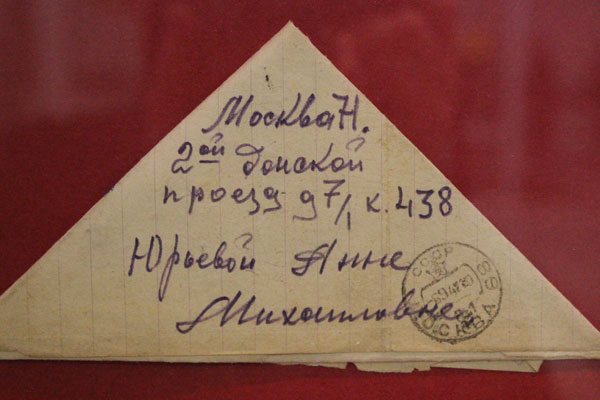 Москва Н.
2ой Донской
проезд д 7/1 к. 438
Юрьевой Анне
Михайловне
СССР
МОСКВА